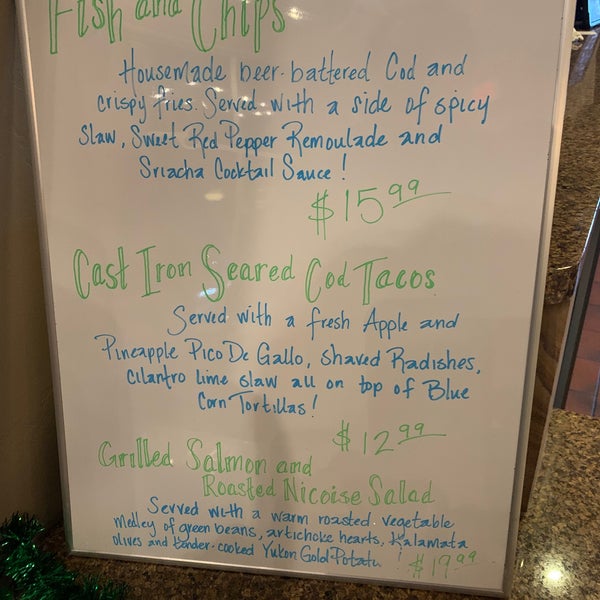 Fish and Chips
Housemade beer-battered Cod and
crispy fries. Served with a side of spicy
slaw, Sweet Red Pepper Remoulade and
Sriacha Cocktail Sauce!
$15.99
Cast Iron Seared Cod Tacos
Served with a fresh Apple and
Pineapple Pico De Gallo, shaved Radishes,
cilantro lime slaw all on top of Blue
Corn Tortillas!
$12.99
Grilled Salmon and
Roasted Nicoise Salad
Served with a warm roasted vegetable
medley of green beans, artichoke hearts, Kalamata
olives and tender-cooked Yukon Gold Potato !
$19.99